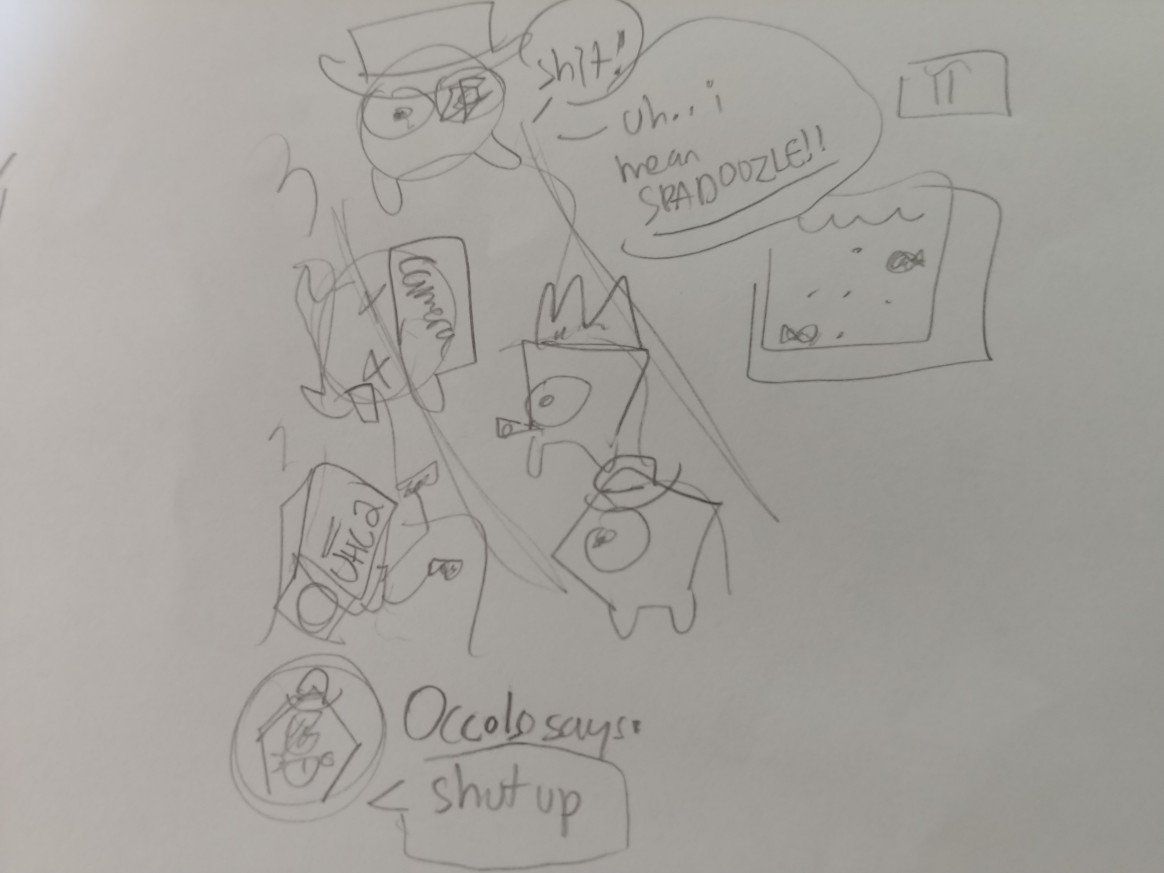 shit!
uh.. i
mean
SPADOOZLE!!
camera
Occolo says:
shut up